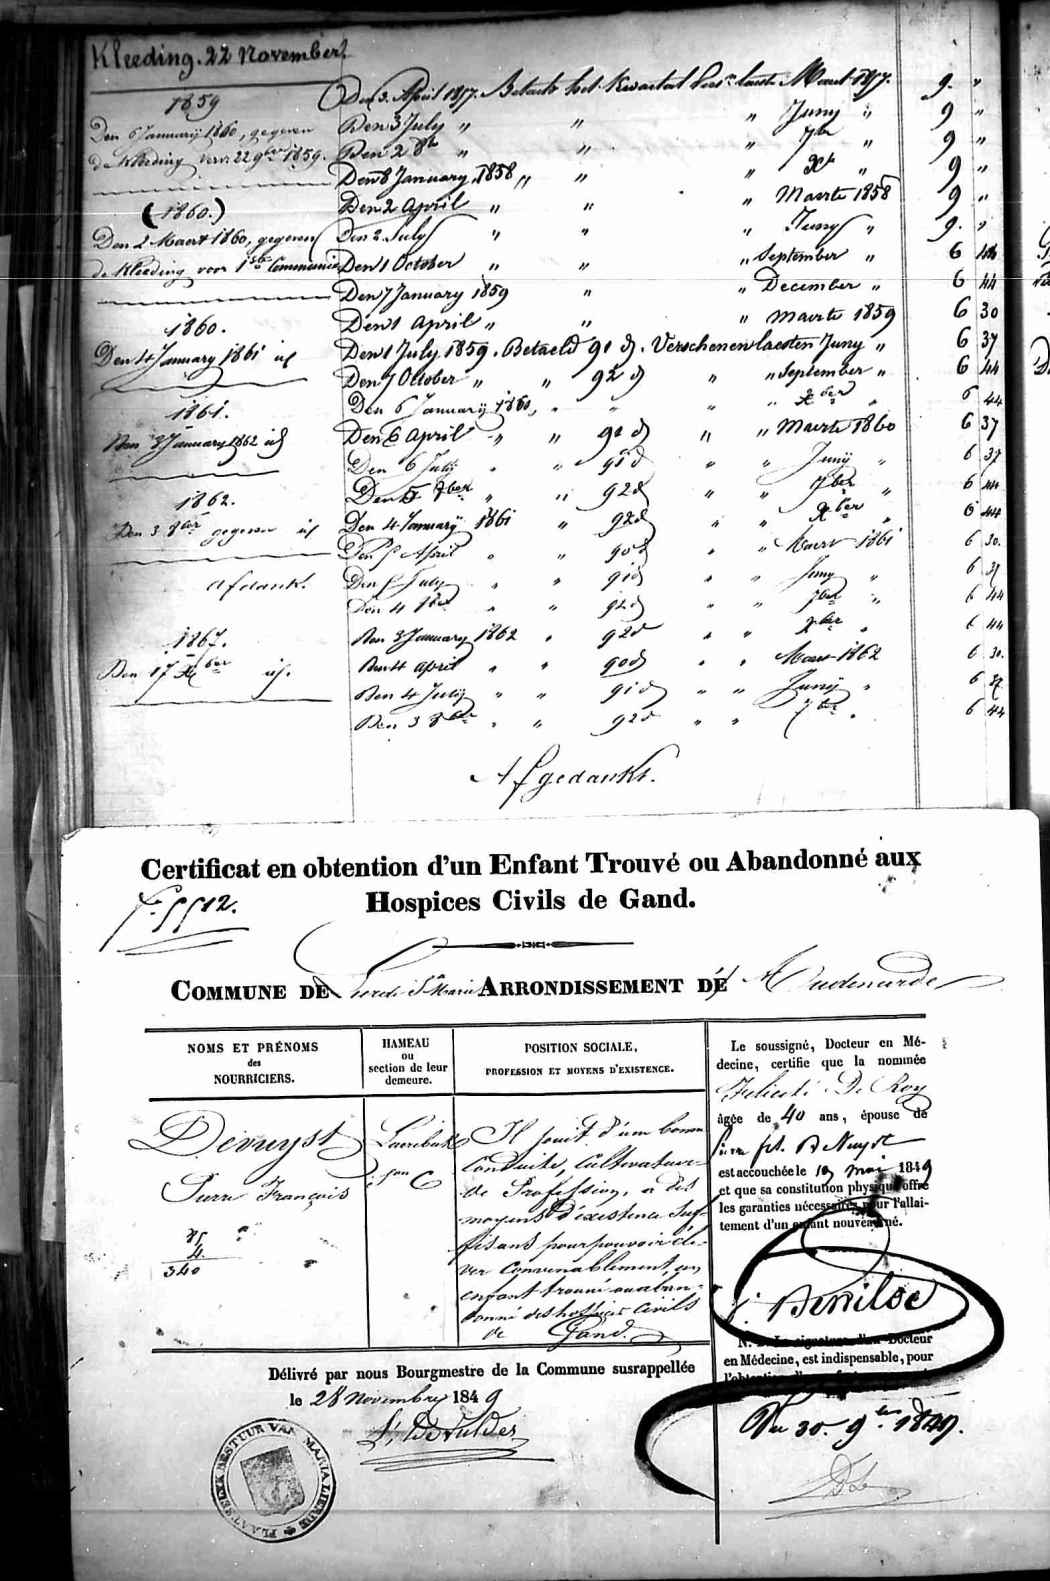 Kleeding. 22 November
1859
Den 6 January 1860, gegeven
de Kleeding voor 22 9ber 1859.
(1860.)
Den 2 Maert 1860, gegeven
de Kleeding voor 1ste Communie
1860.
Den 4 January 1861 id
1861.
Den 3 January 1862 id
1862.
Den 3 8ber gegeven id
Afdank.
1867.
Den 17 Xber id.
Den 3. April 1857. Betaelt het Kwartael laeste Maert 1857. 9. "
Den 3 July " " " Juny " 9 "
Den 2 8br " " " 7br " 9 "
Den 8 January 1858 " " " Xbr " 9 "
Den 2 April " " " Maerte 1858 9 "
Den 2 July " " " Juny " 9. "
Den 1 October " " " September " 6 44
Den 7 January 1859 " " December " 6 44
Den 1 April " " " Maerte 1859 6 30
Den 1 July 1859. Betaeld 91 d. Verschenen laesten Juny " 6 37
Den 7 October " " 92 d " " September " 6 44
Den 6 January 1860, " " " " Xber " 6 44
Den 6 April " " 91 d " " Maerte 1860 6 37
Den 6 July " " 91 d " " Juny " 6 37
Den 5 8ber " " 92 d " " 7ber " 6 44
Den 4 January 1861 " 92 d " " Xber 6 44
Den 5 April " " 90 d " " Maert 1861 6 30.
Den 5 July " " 91 d " " Juny " 6 37
Den 4 8ber " " 92 d " " 7ber " 6 44
Den 3 January 1862 " 92 d " " Xber " 6 44
Den 4 April " " 90 d " " Maert 1862 6 30.
Den 4 July " " 91 d " " Juny " 6 37
Den 3 8ber " " 92 d " " 7ber " 6 44
Afgedankt.
Certificat en obtention d'un Enfant Trouvé ou Abandonné aux
Hospices Civils de Gand.
COMMUNE DE Lierde Ste Marie ARRONDISSEMENT DE Audenarde
NOMS ET PRÉNOMS
des
NOURRICIERS.
HAMEAU
ou
section de leur
demeure.
POSITION SOCIALE,
PROFESSION ET MOYENS D'EXISTENCE.
Devuyst
Pierre François
85
4
340
son C
Il jouit d'une bonne
conduite, cultivateur
de Profession, a des
moyens d'existence suf-
fisans pour pouvoir éle-
ver convenablement un
enfant trouvé ou aban-
donné des hospices civils
de Gand.
Le soussigné, Docteur en Mé-
decine, certifie que la nommée
Félicité De Roy
âgée de 40 ans, épouse de
Pierre fs. De Vuyst
est accouchée le 19 mai 1849
et que sa constitution physique offre
les garanties nécessaires pour l'allai-
tement d'un enfant nouveau né.
N. La signature d'un Docteur
en Médecine, est indispensable, pour
Du 30. 9bre 1849.
Délivré par nous Bourgmestre de la Commune susrappellée
le 28 Novembre 1849
PLAATSELYK BESTUUR VAN MARIA LIERDE